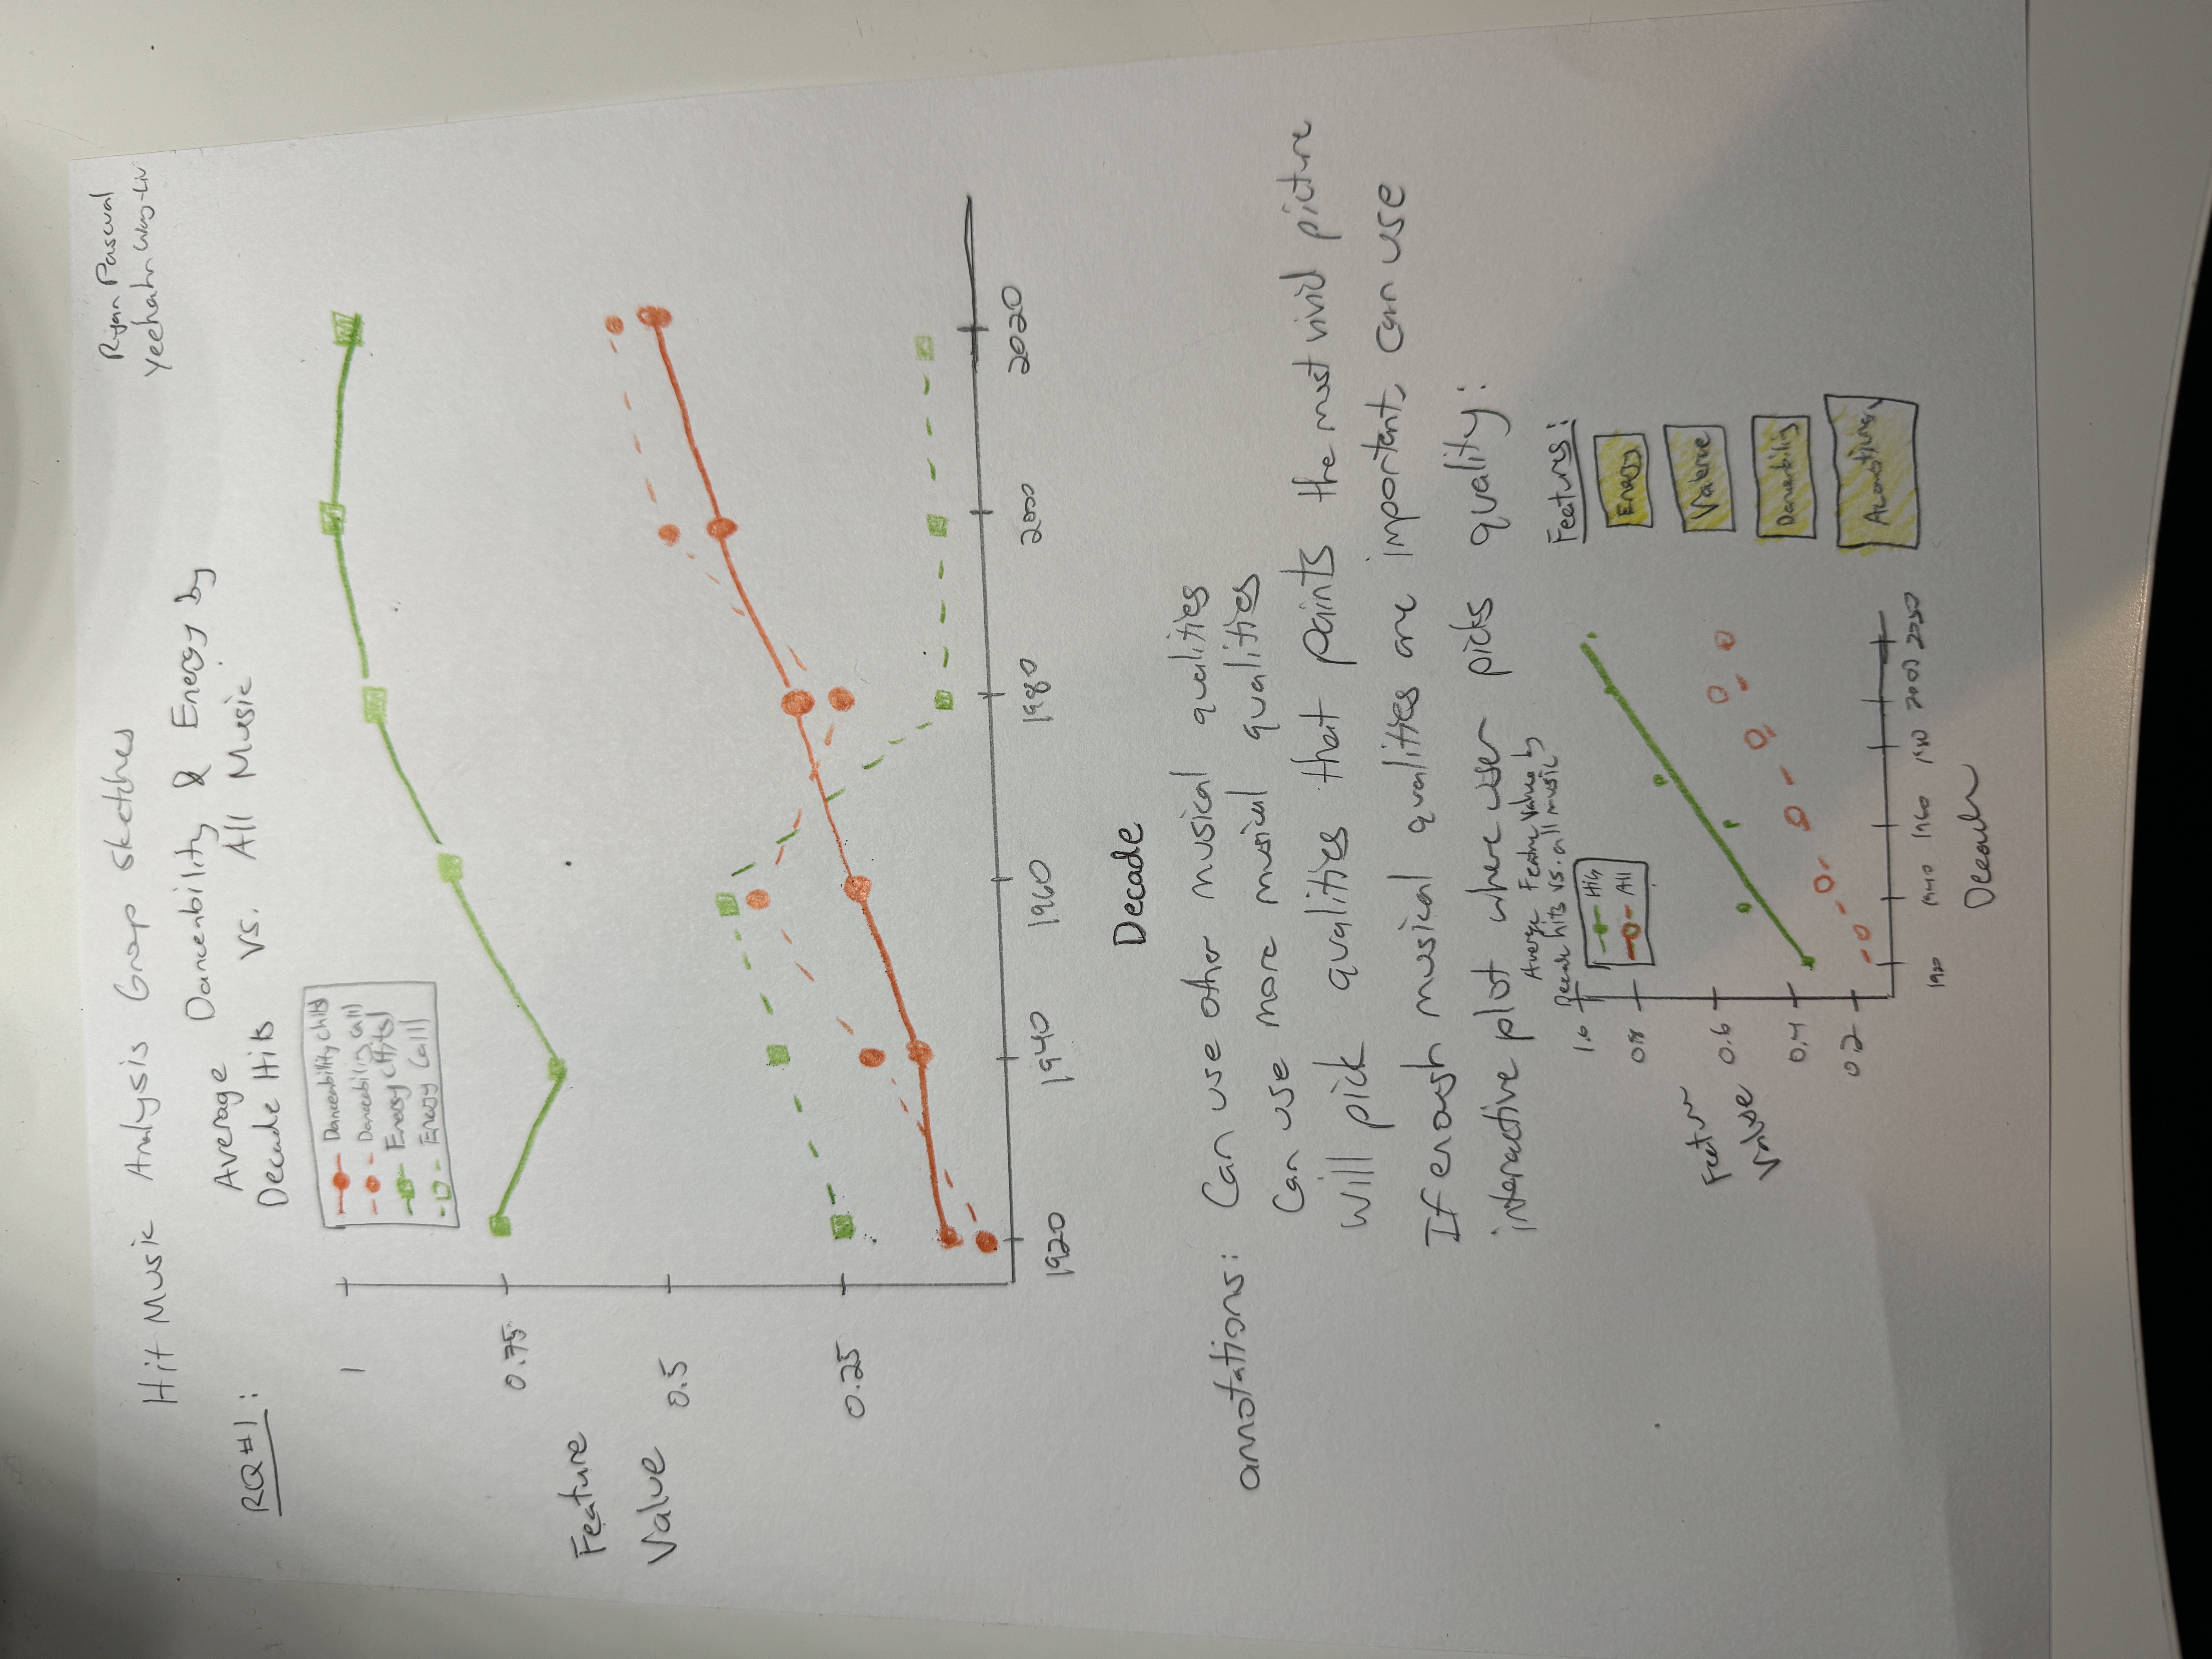 Hit Music Analysis Group Sketches
Ryan Pascual
Yeehahn
RQ #1:
Average Danceability & Energy by
Decade Hits vs. All Music
Danceability (hits)
Danceability (all)
Energy (Hits)
Energy (all)
1
0.75
0.5
0.25
Feature
Value
1920
1940
1960
1980
2000
2020
Decade
annotations: Can use other musical qualities
Can use more musical qualities
Will pick qualities that paints the most vivid picture
If enough musical qualities are important, can use
interactive plot where user picks quality:
Average Feature Value by
Decade hits vs. all music
Hits
All
1.0
0.8
0.6
0.4
0.2
Feature
Value
1920
1940
1960
1980
2000
Decade
Features:
Energy
Valence
Danceability